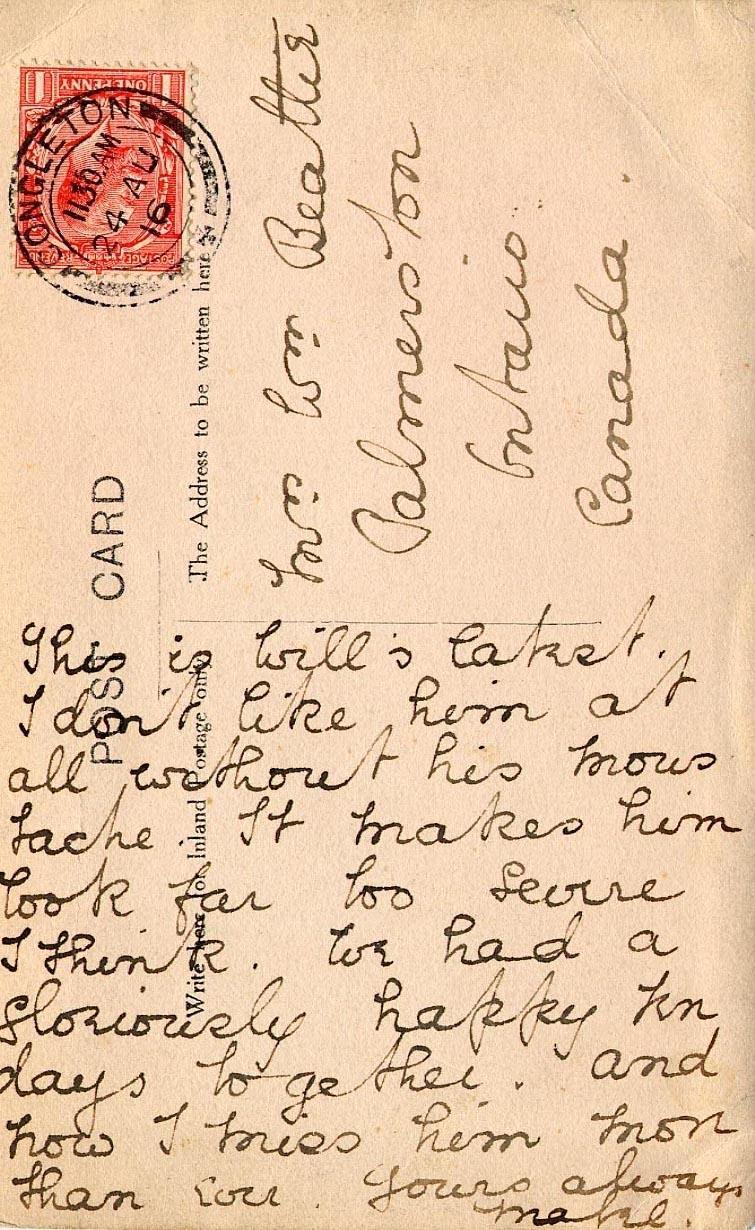 POST CARD
The Address to be written here
Write here for Inland Postage only
ONE PENNY
1 1
POSTAGE REVENUE
CONGLETON
11 30 AM
24 AU
16
Mrs Wm Beattie
Palmerston
Ontario
Canada.
This is Will's latest.
I don't like him at
all without his mous
tache. It makes him
look far too severe
I think. We had a
gloriously happy ten
days together. and
how I miss him more
than ever. Yours always
Mabel.